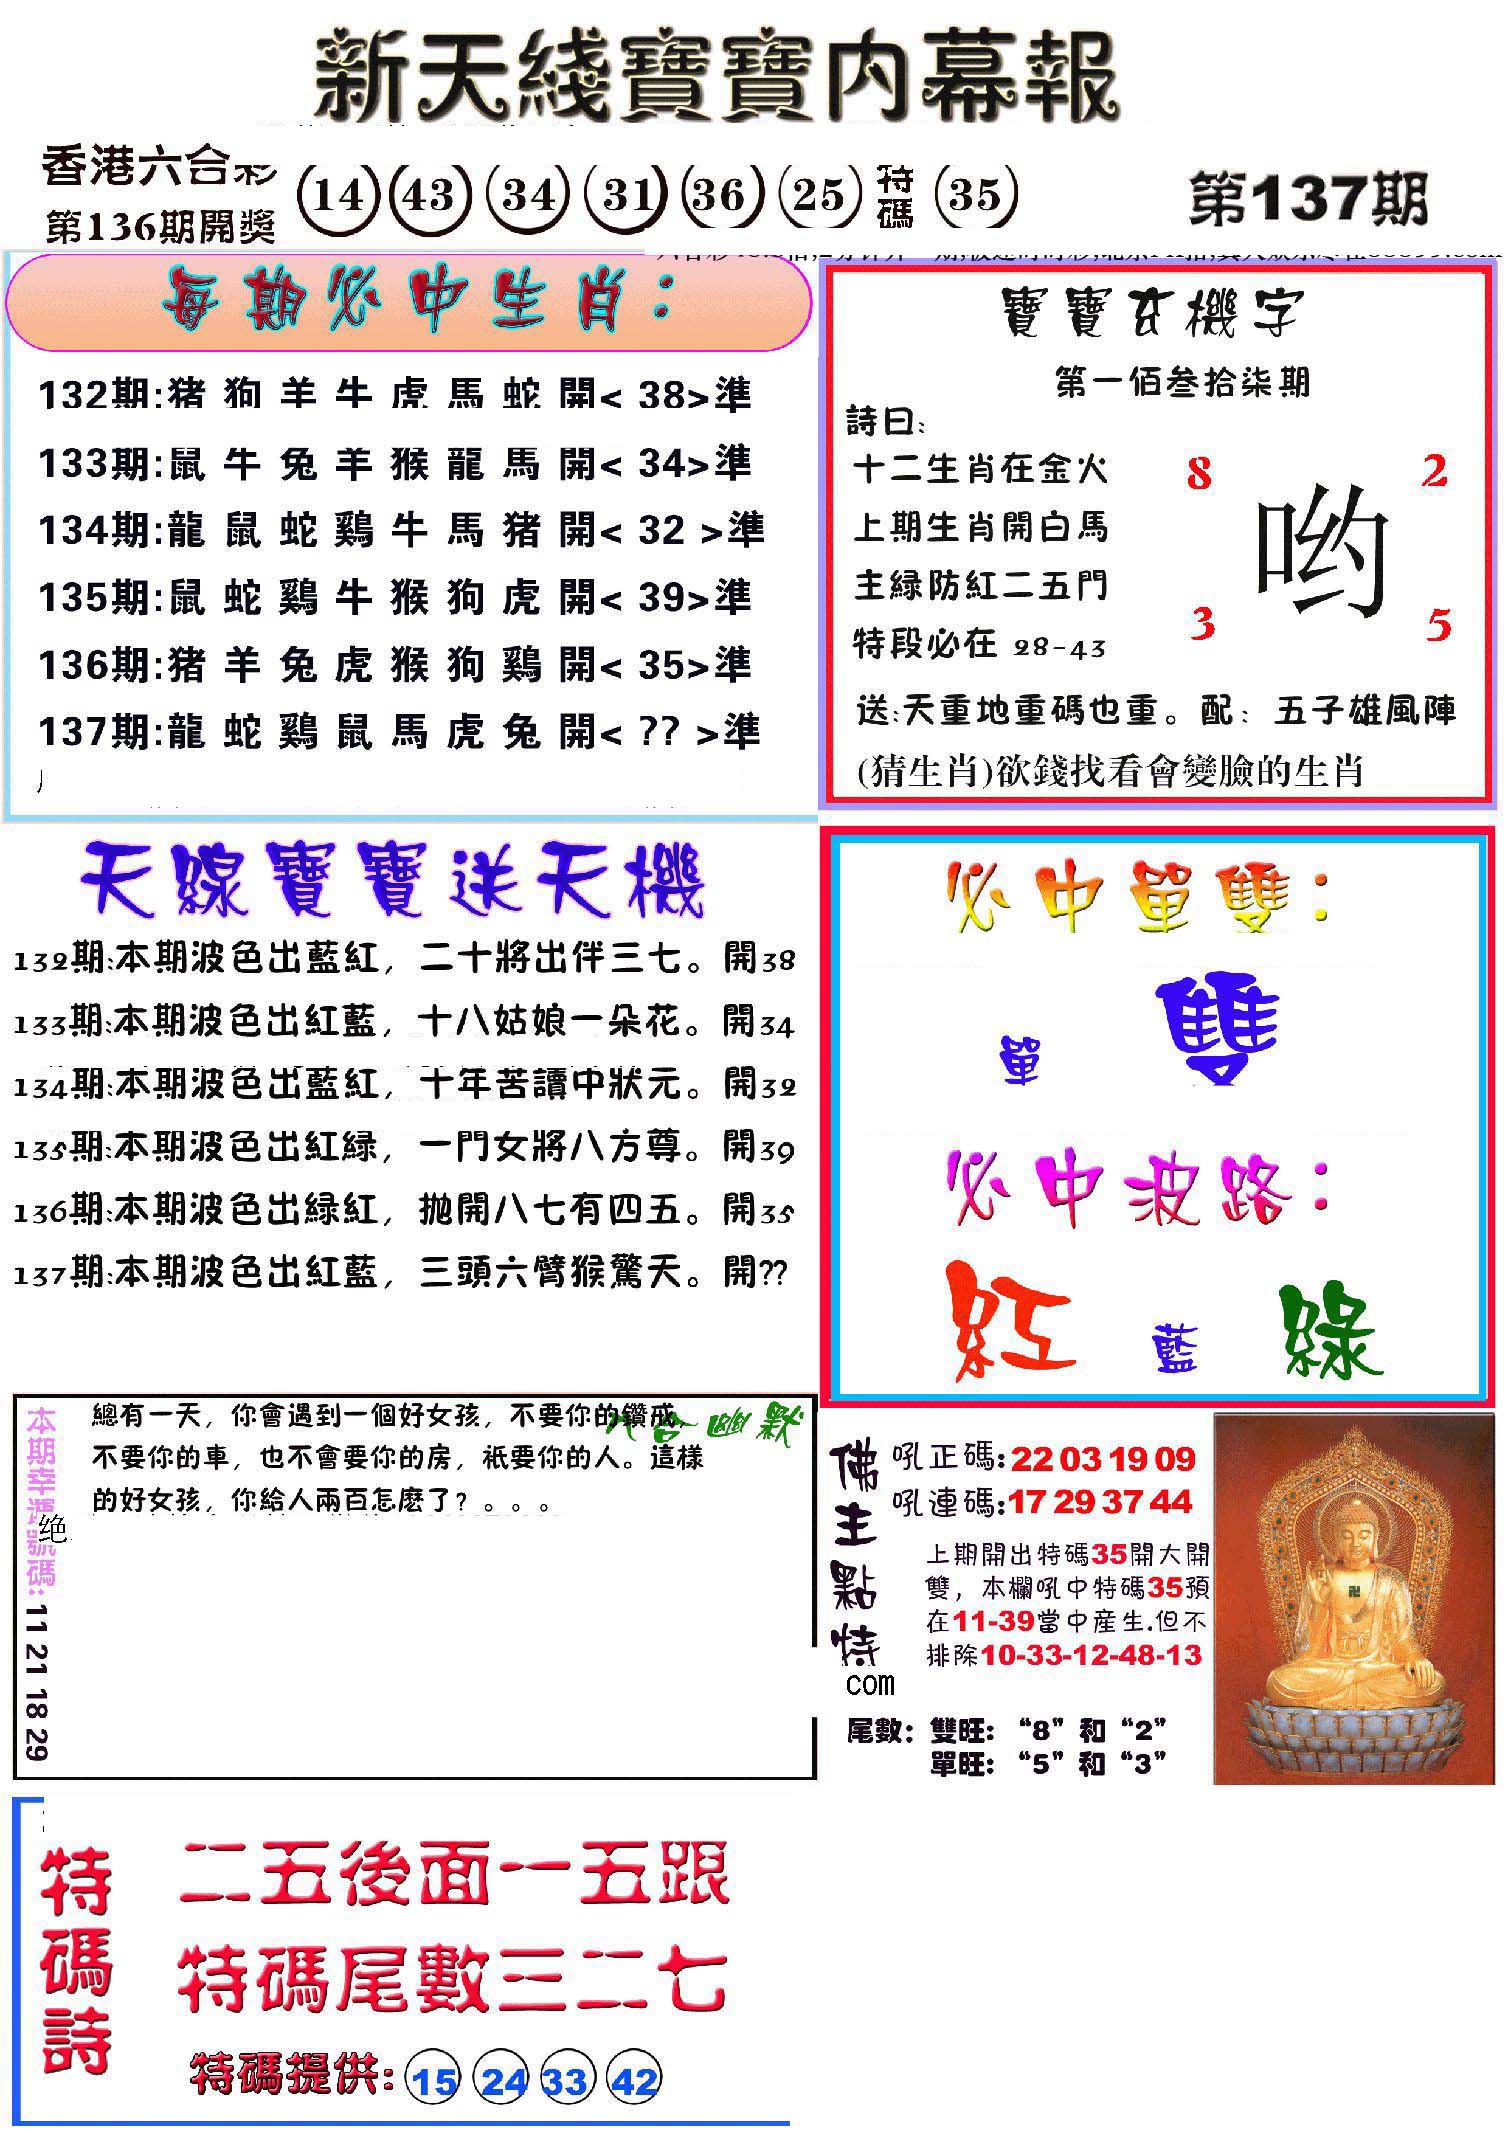 新天綫寶寶内幕報
香港六合彩
第136期開獎
14 43 34 31 36 25 特碼 35
第137期
每期必中生肖：
132期:猪 狗 羊 牛 虎 馬 蛇 開< 38>準
133期:鼠 牛 兔 羊 猴 龍 馬 開< 34>準
134期:龍 鼠 蛇 鷄 牛 馬 猪 開< 32 >準
135期:鼠 蛇 鷄 牛 猴 狗 虎 開< 39>準
136期:猪 羊 兔 虎 猴 狗 鷄 開< 35>準
137期:龍 蛇 鷄 鼠 馬 虎 兔 開< ?? >準
寶寶玄機字
第一佰叁拾柒期
詩曰:
十二生肖在金火
上期生肖開白馬
主緑防紅二五門
特段必在 28-43
8 2
哟
3 5
送:天重地重碼也重。配：五子雄風陣
(猜生肖)欲錢找看會變臉的生肖
天線寶寶送天機
132期:本期波色出藍紅，二十將出伴三七。開38
133期:本期波色出紅藍，十八姑娘一朵花。開34
134期:本期波色出藍紅，十年苦讀中狀元。開32
135期:本期波色出紅緑，一門女將八方尊。開39
136期:本期波色出緑紅，拋開八七有四五。開35
137期:本期波色出紅藍，三頭六臂猴驚天。開??
必中單雙：
單 雙
必中波路：
紅 藍 綠
六合幽默
總有一天，你會遇到一個好女孩，不要你的鑽戒，
不要你的車，也不會要你的房，衹要你的人。這樣
的好女孩，你給人兩百怎麽了？。。。
本期幸運號碼: 11 21 18 29
绝
佛主點特
com
吼正碼:22 03 19 09
吼連碼:17 29 37 44
上期開出特碼35開大開
雙，本欄吼中特碼35預
在11-39當中産生.但不
排除10-33-12-48-13
尾數：雙旺：“8”和“2”
單旺：“5”和“3”
特碼詩
二五後面一五跟
特碼尾數三二七
特碼提供: 15 24 33 42